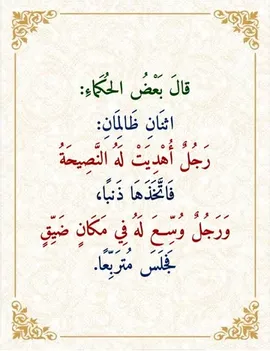 قَالَ بَعْضُ الحُكَمَاءِ:
اثنَانِ ظَالِمَانِ:
رَجُلٌ أُهْدِيَتْ لَهُ النَّصِيحَةُ
فَاتَّخَذَهَا ذَنبًا،
وَرَجُلٌ وُسِّعَ لَهُ فِي مَكَانٍ ضَيِّقٍ
فَجَلَسَ مُتَرَبِّعًا.